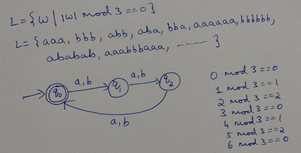 L={w | |w| mod 3 == 0}
L={aaa, bbb, abb, aba, bba, aaaaaa, bbbbbb,
ababab, aaabbbaaa, ------- }
a,b a,b
q0 q1 q2
a,b
0 mod 3 == 0
1 mod 3 == 1
2 mod 3 == 2
3 mod 3 == 0
4 mod 3 == 1
5 mod 3 == 2
6 mod 3 == 0